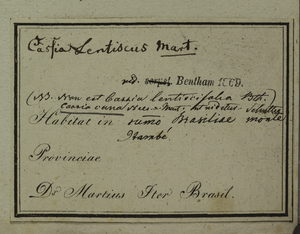 Cassia Lentiscus Mart.
vid. Bentham 1869.
(NB. Non est Cassia lentiscifolia Bth.
Cassia cana Nees Mart.
Habitat in Brasiliae monte
Itambé
Provinciae
Dr Martius Iter Brasil.